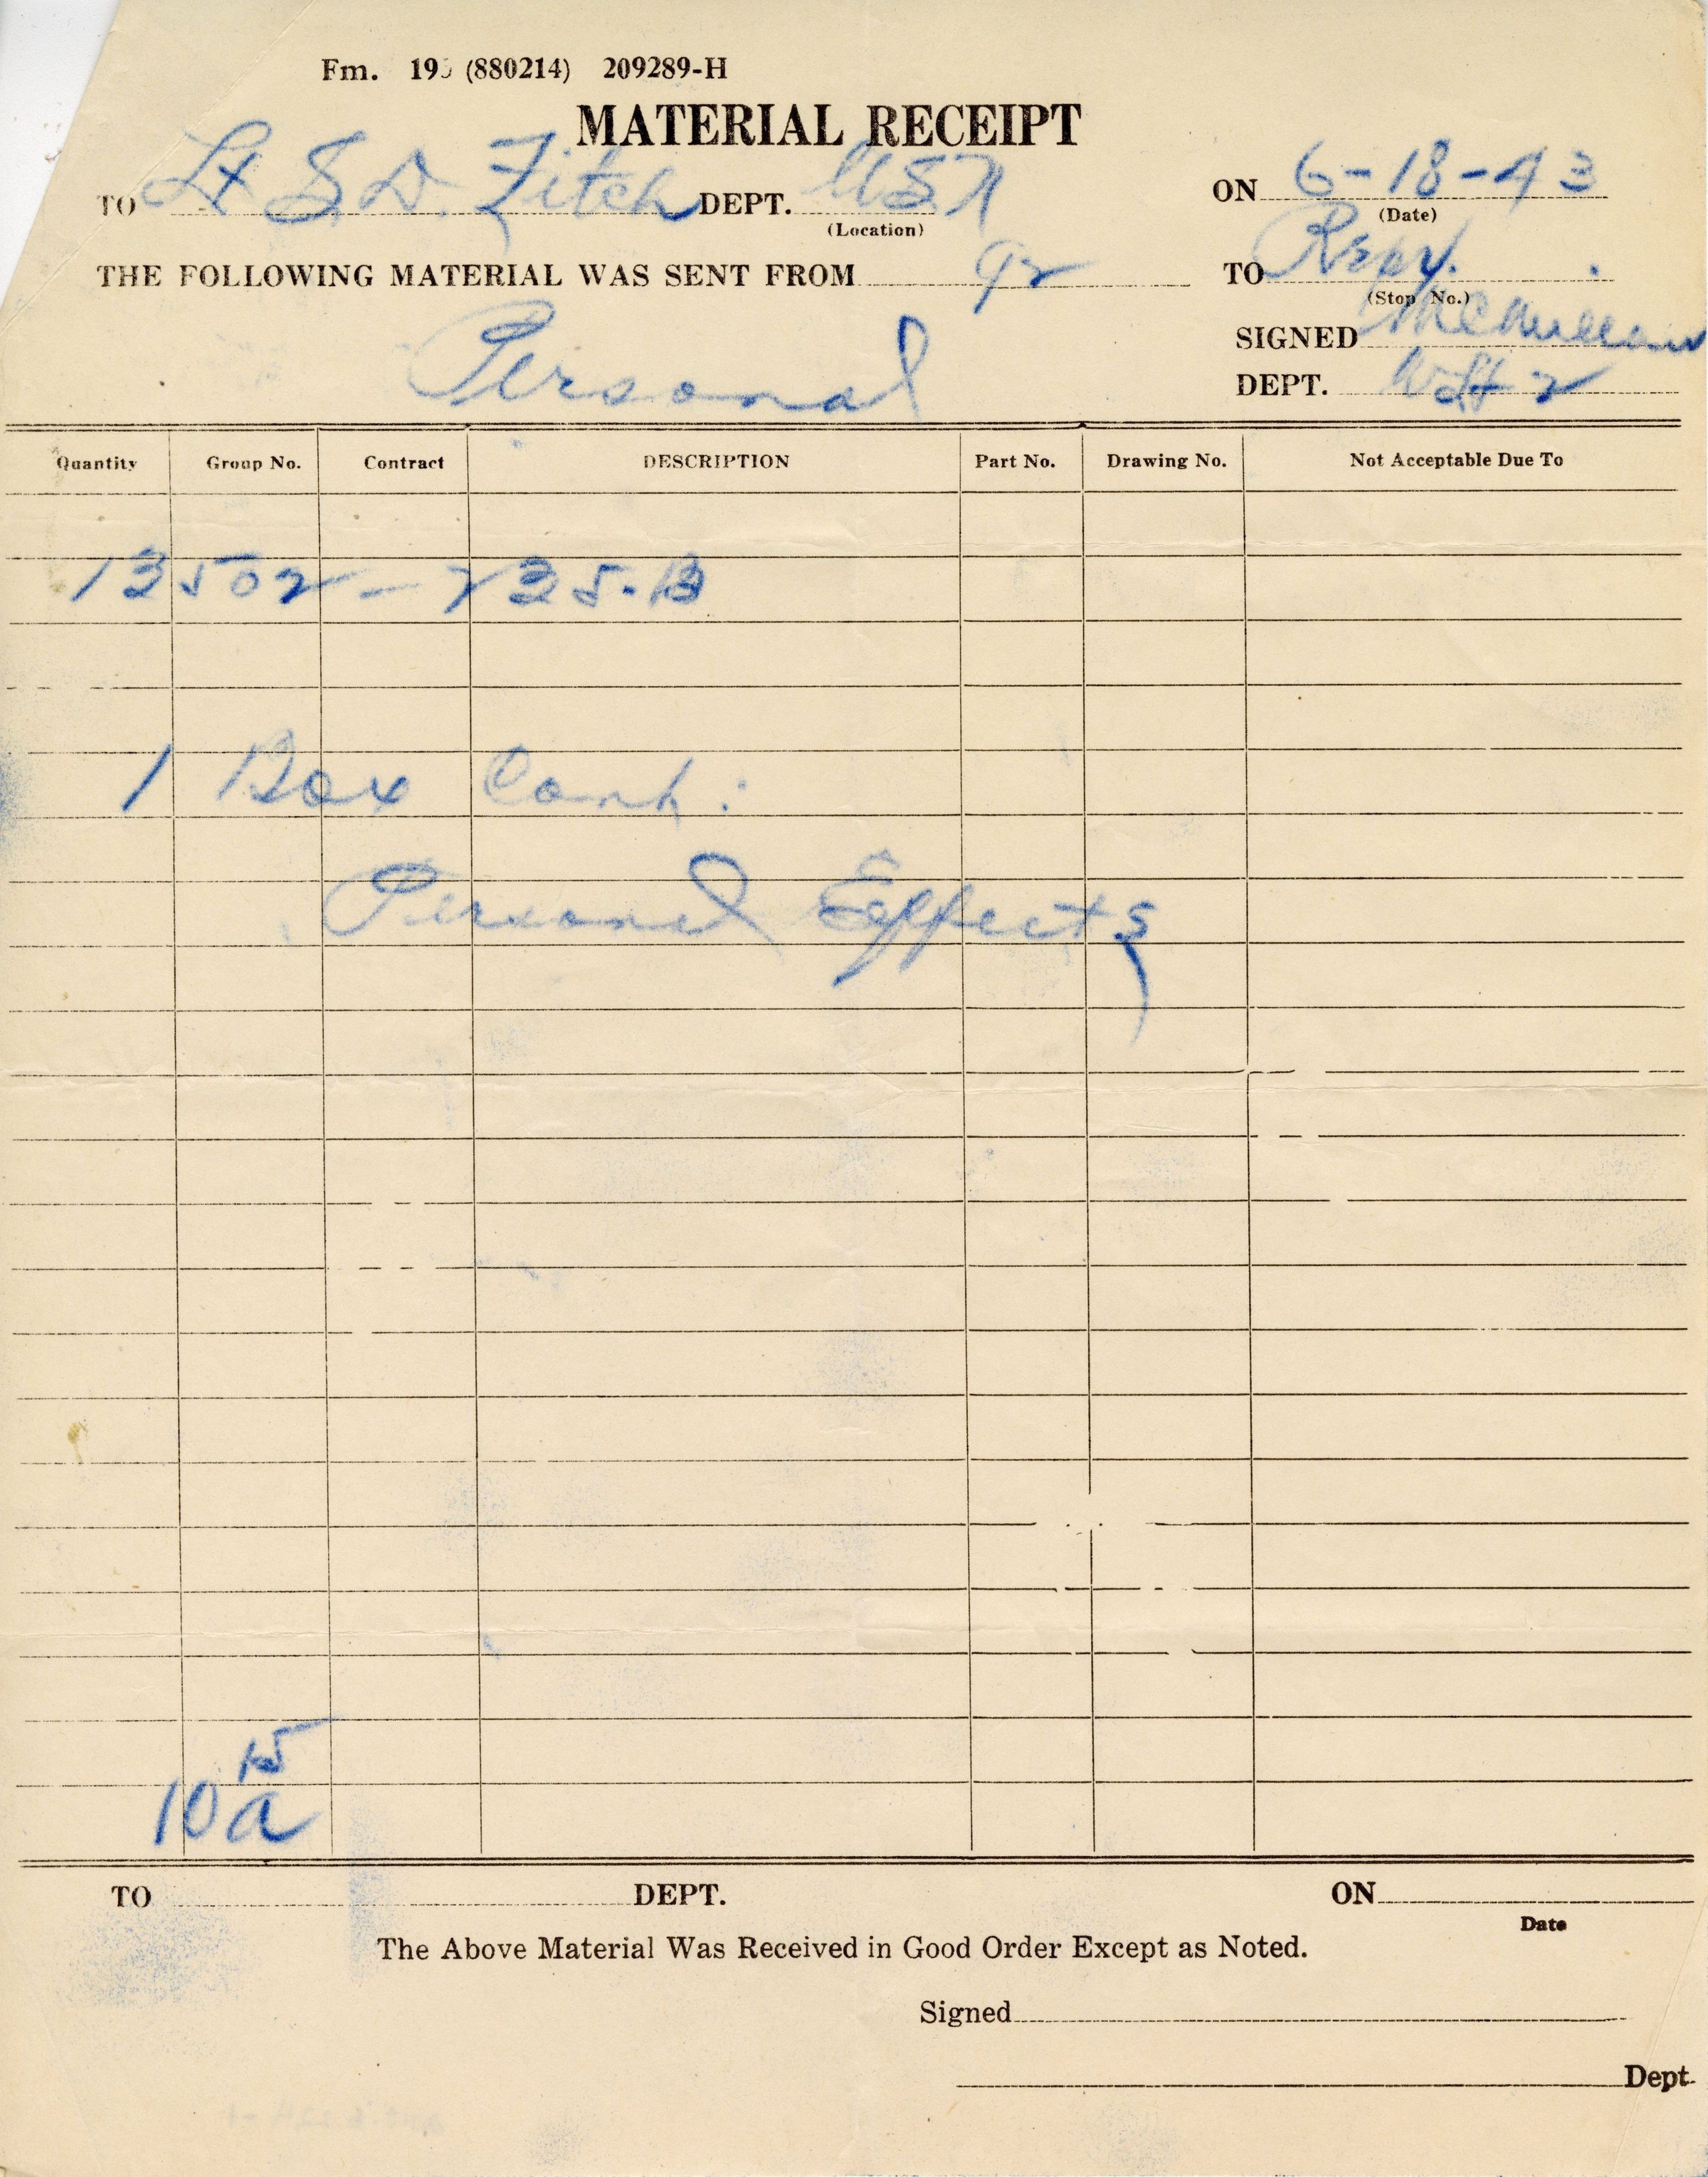 Fm. 195 (880214) 209289-H
MATERIAL RECEIPT
TO Lt S. D. Fitch DEPT. USN ON 6-18-43
(Location) (Date)
THE FOLLOWING MATERIAL WAS SENT FROM 92 TO
(Stop No.)
Personal SIGNED McMullan
DEPT.
Quantity Group No. Contract DESCRIPTION Part No. Drawing No. Not Acceptable Due To
13502 - 735-13
1 Box Cont:
Personal Effects
10 15 a
TO DEPT. ON
Date
The Above Material Was Received in Good Order Except as Noted.
Signed
Dept.